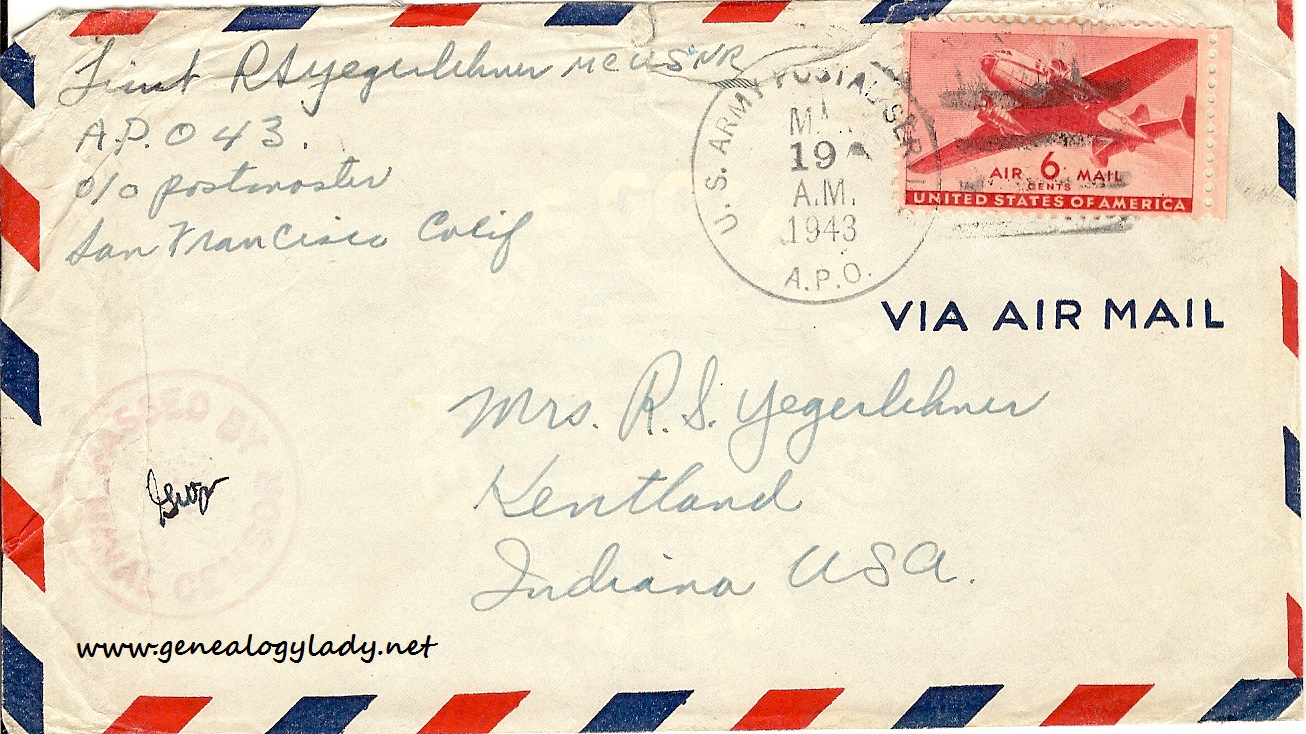 Lieut RSYegerlehner MC USNR
A.P.O 43.
c/o postmaster
San Francisco Calif
U.S. ARMY POSTAL SER
19
A.M.
1943
A.P.O.
AIR 6 MAIL
CENTS
UNITED STATES OF AMERICA
VIA AIR MAIL
Mrs. R. S. Yegerlehner
Kentland
Indiana USA.
PASSED BY
NAVAL CENSOR
www.genealogylady.net